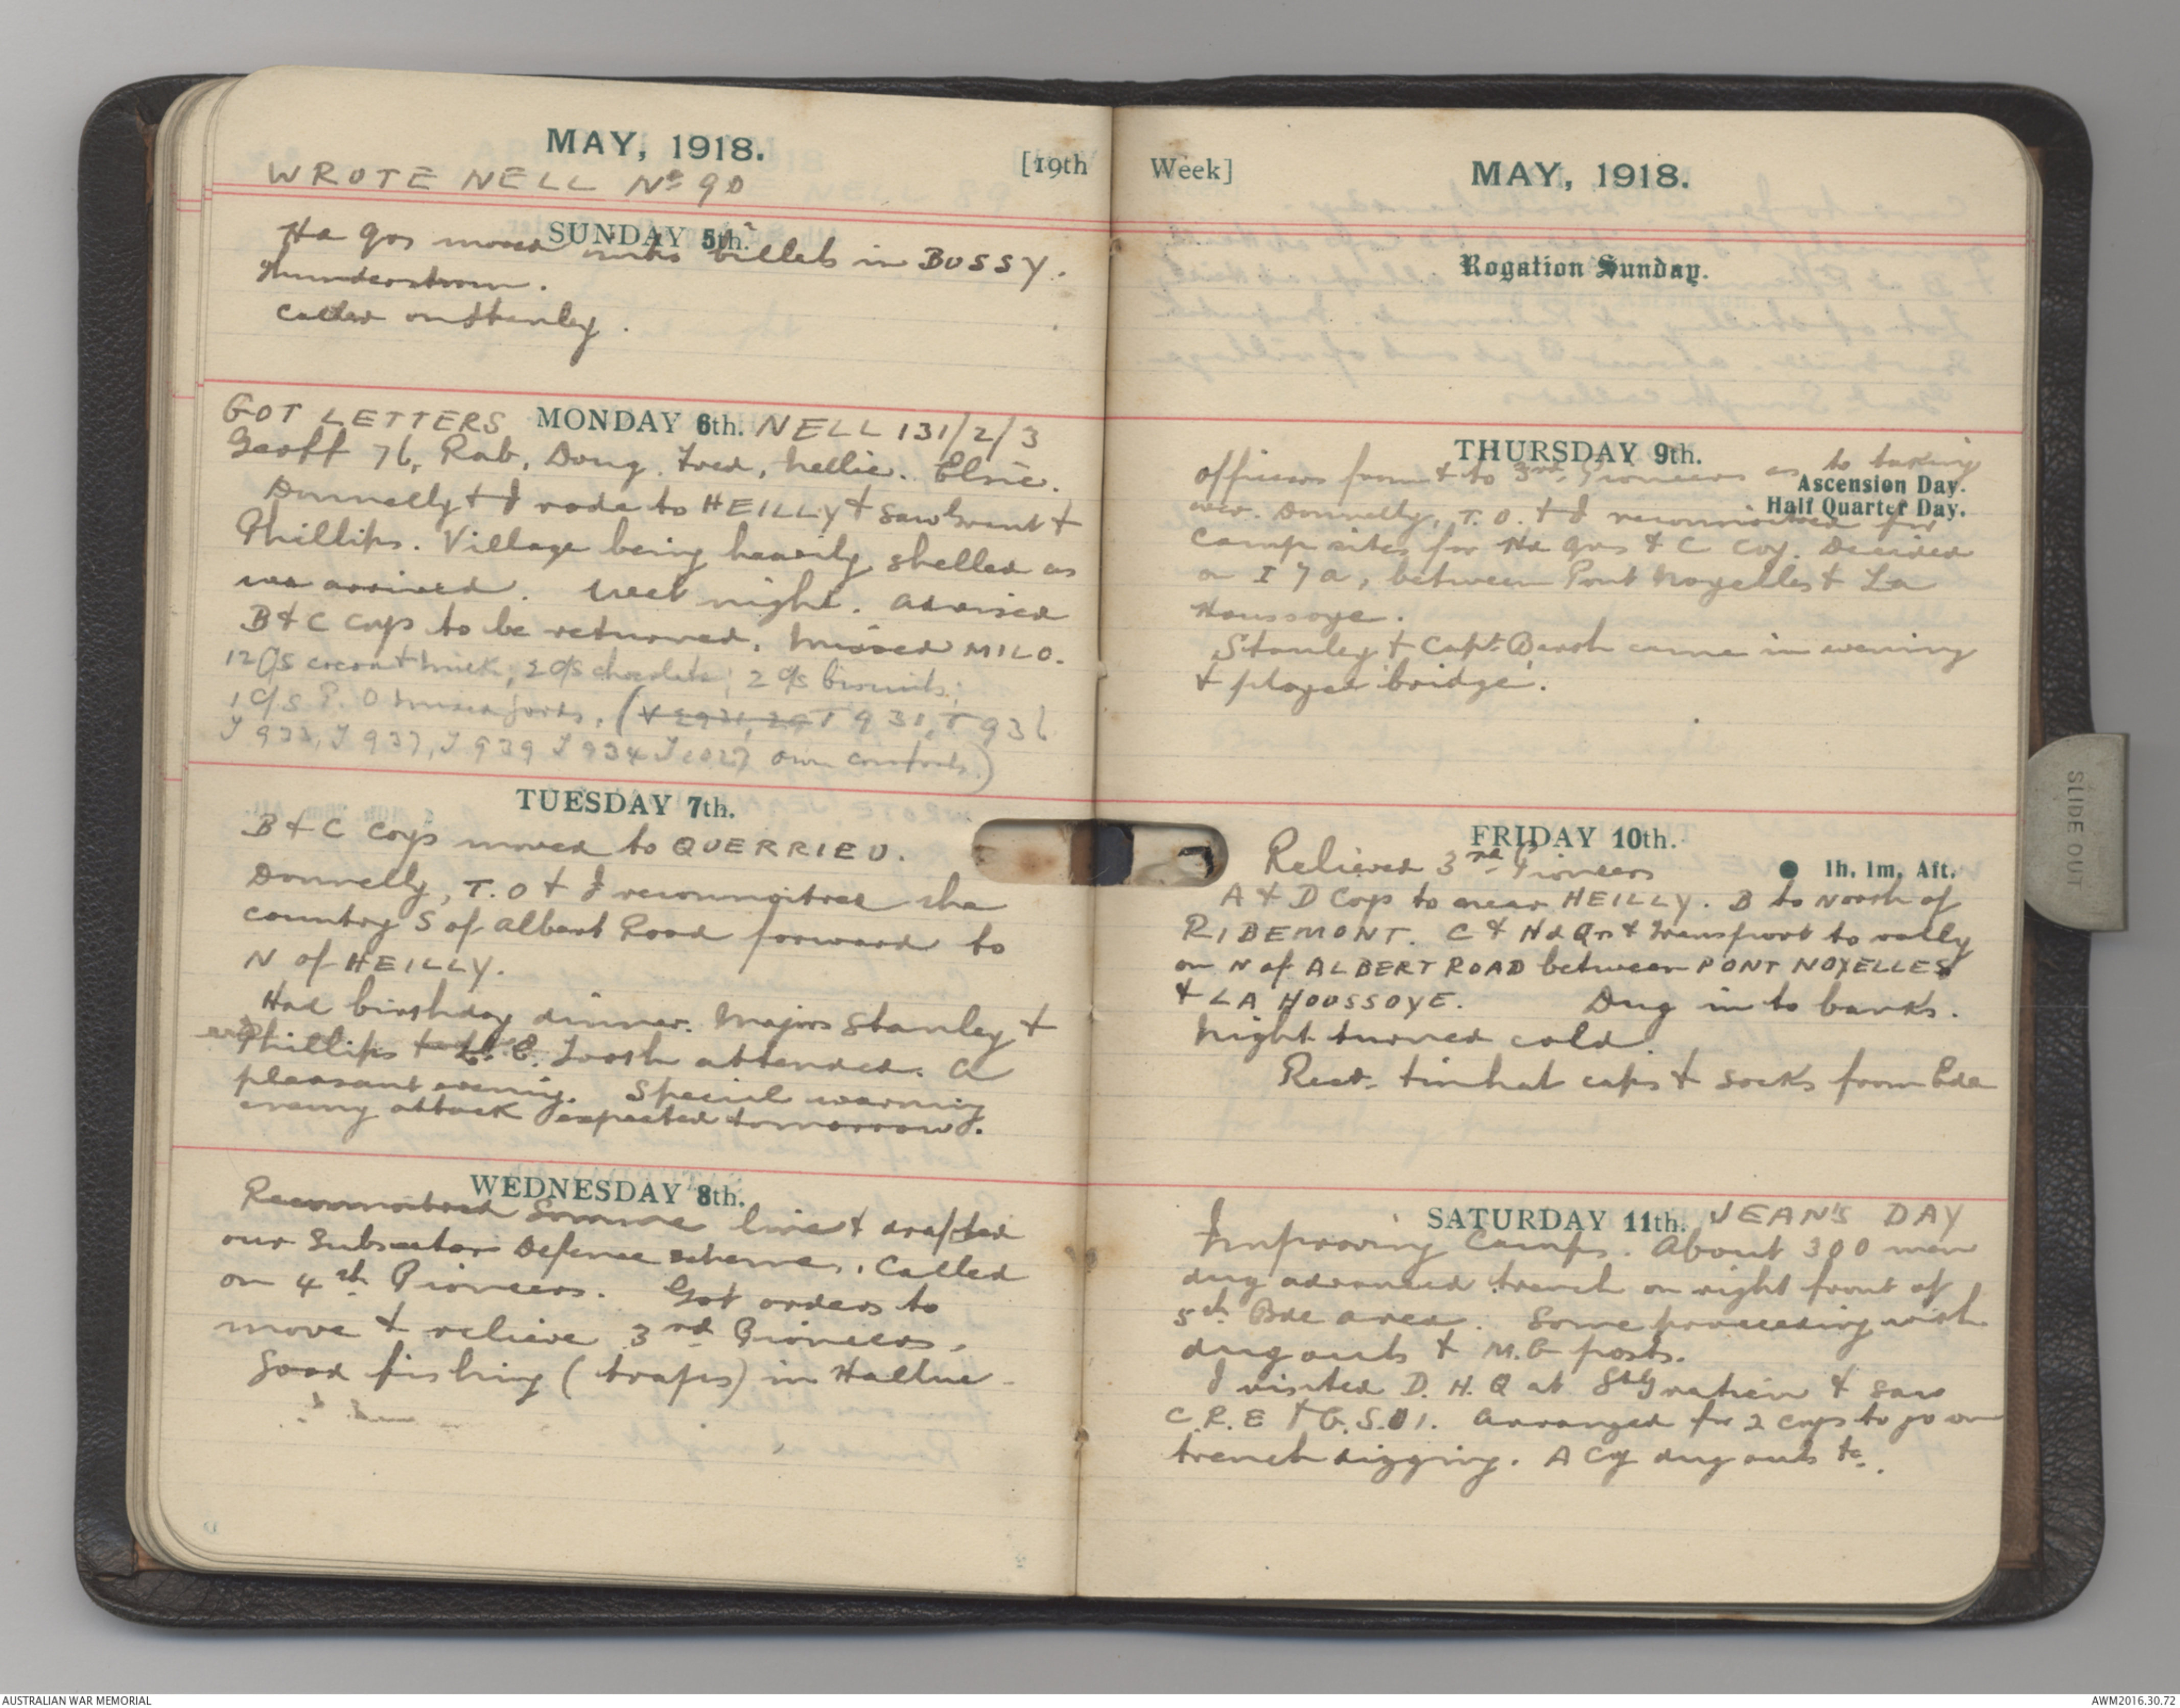 MAY, 1918.
[19th
WROTE NELL No 90
SUNDAY 5th.
Hd Qrs moved into billets in BUSSY.
Thunderstorm.
Called on Stanley.
GOT LETTERS MONDAY 6th. NELL 131/2/3
Geoff 76, Rab, Doug, Fred, Nellie. Elsie.
Donnelly & I rode to HEILLY & saw Grant &
Phillips. Village being heavily shelled as
we arrived. Wet night. Advised
B & C Coys to be returned. Missed MILO.
12 c/s cocoa & milk, 2 c/s chocolate; 2 c/s biscuits;
1 c/s P.O. (T 931, T 936
J 933, J 937, J 939 J 934 J own comforts.)
TUESDAY 7th.
B & C Coys moved to QUERRIEU.
Donnelly, T.O & I reconnoitred the
country S of Albert Road forward to
N of HEILLY.
Had birthday dinner. Majors Stanley &
Phillips attended. A
pleasant evening. Special warning
enemy attack expected tomorrow.
WEDNESDAY 8th.
Reconnoitred Somme line & drafted
our Subsector Defence scheme. Called
on 4th Pioneers. Got orders to
move & relieve 3rd Pioneers.
Good fishing (traps) in Hallue
Week]
MAY, 1918.
Rogation Sunday.
THURSDAY 9th.
Ascension Day.
Half Quarter Day.
officers from & to 3rd Pioneers as to taking
over. Donnelly, T.O. & I reconnoitred for
camp sites for Hd Qrs & C Coy. Decided
on I 7 a, between Pont Noyelles & La
Houssoye.
Stanley & Capt. came in evening
& played bridge.
FRIDAY 10th.
● 1h. 1m. Aft.
Relieved 3rd Pioneers
A & D Coys to near HEILLY. B to North of
RIBEMONT. C & Hd Qrs & Transport to valley
on N of ALBERT ROAD between PONT NOYELLES
& LA HOUSSOYE. Dug in to banks.
Night turned cold.
Recd. tin hat caps & socks from Bde
SATURDAY 11th. JEAN'S DAY
Improving Camps. About 300 men
dug advanced trench on right front of
5th Bde area. Some proceeding with
dug outs & M.G posts.
I visited D.H.Q at St Gratien & saw
C.R.E & G.S.O 1. Arranged for 2 coys to go on
trench digging. A Coy dug outs &c.
SLIDE OUT
AUSTRALIAN WAR MEMORIAL
AWM2016.30.72